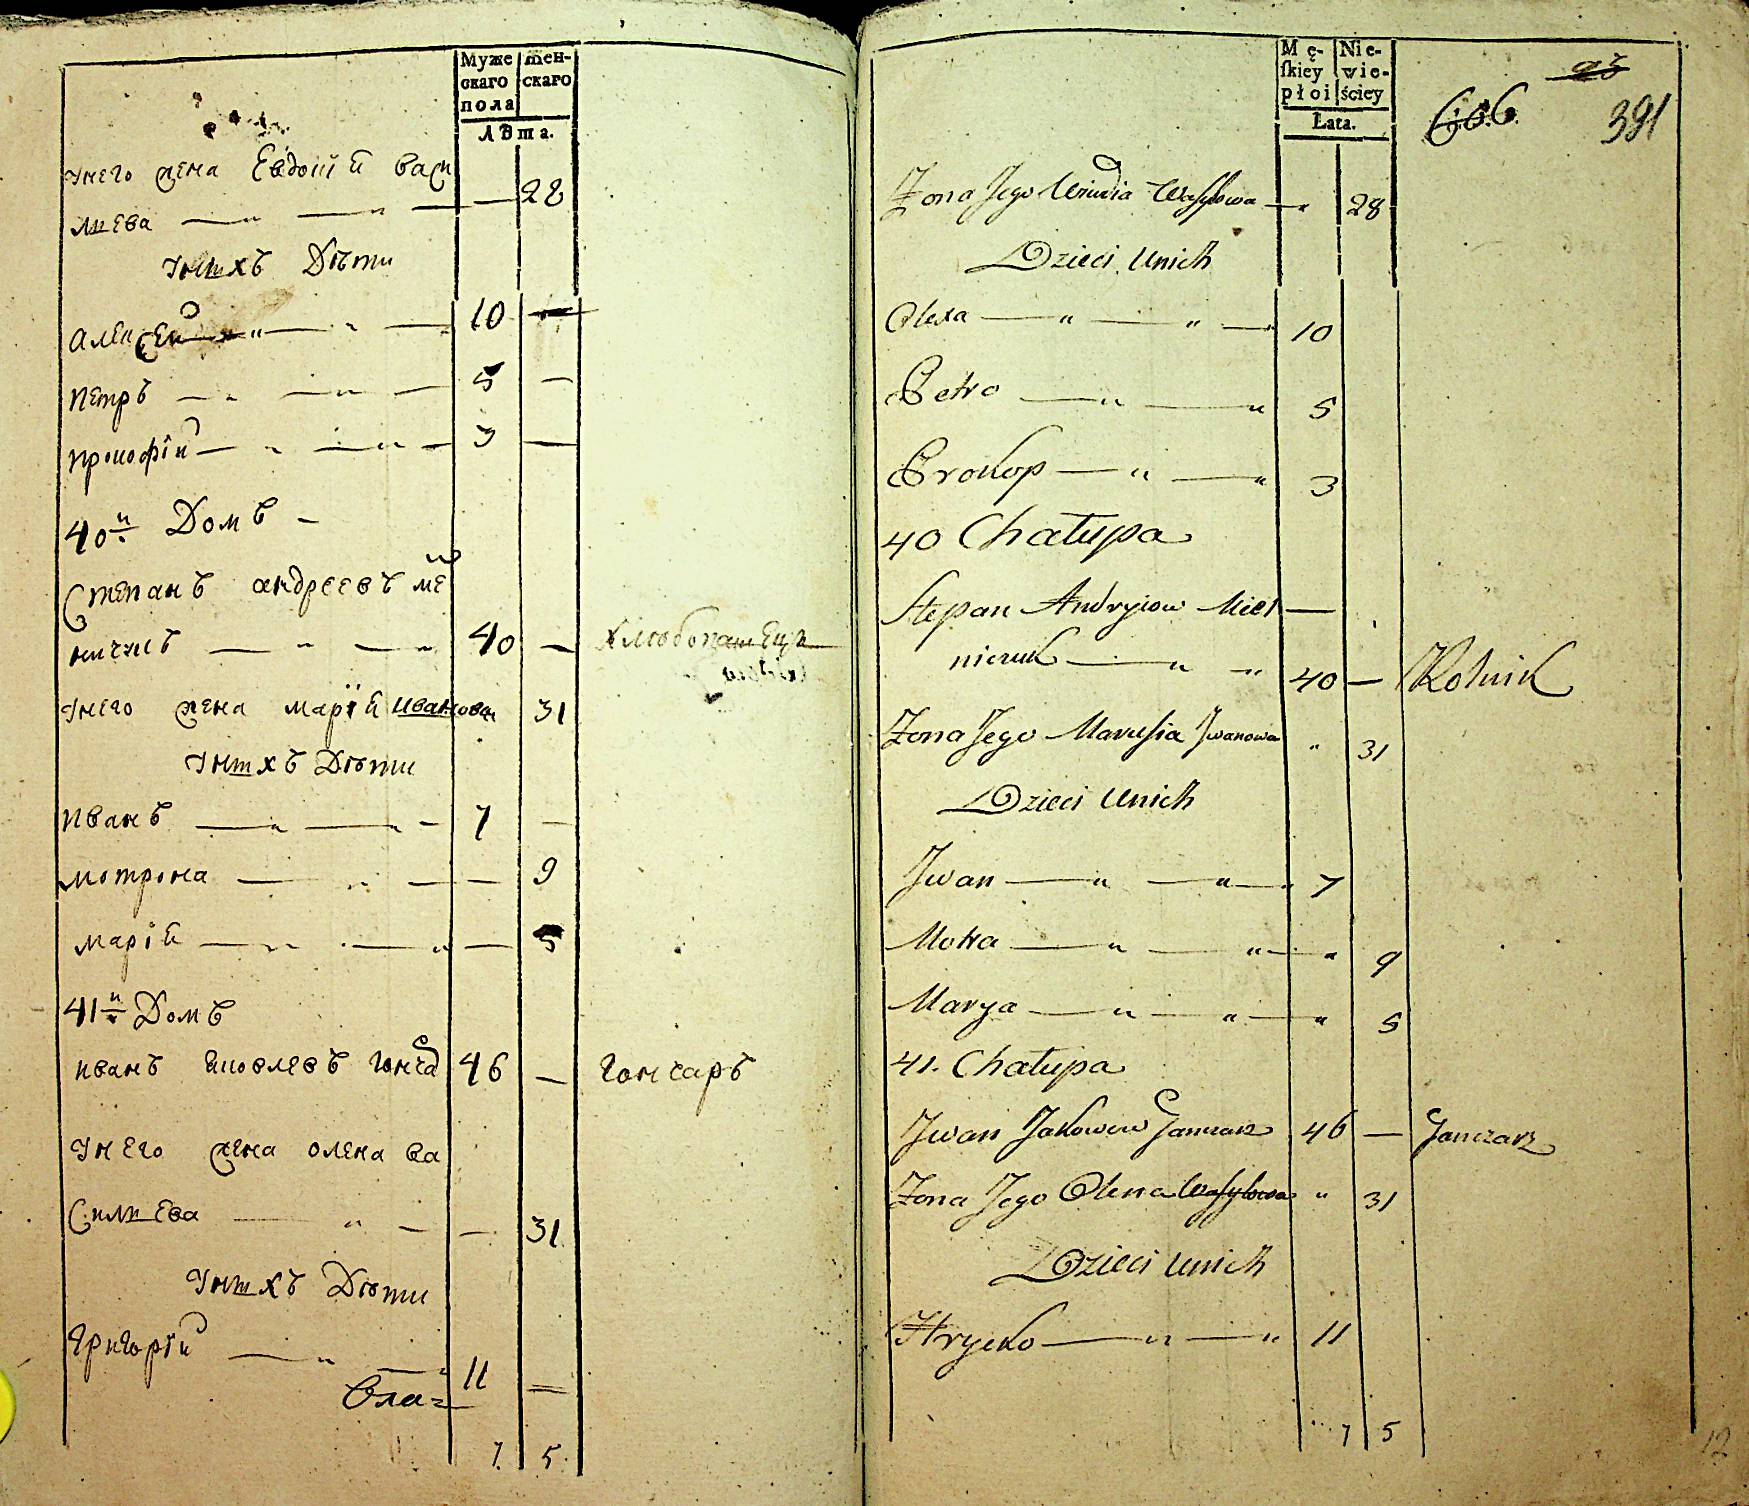 Муже
скаго
пола
женскаго
Лѣта.
унего жена Евдокія Васи
лиева — — — 28
унихъ Дѣти
Алексей — — 10 —
Петръ — — 5 —
Прокофій — — 3 —
40й Домъ —
Степанъ Андреевъ ме
ничукъ — — 40 —
унего жена Марія Иванова 31
унихъ Дѣти
Иванъ — — 7 —
Мотрона — — — 9
Марія — — — 5
41й Домъ
Иванъ Яковлевъ Гонча 46 — Гончаръ
унего жена Олена Ва
Силиева — — — 31
унихъ Дѣти
Григорій — — 11 —
Вла=
7. 5.
Mę-
skiey
płoi
Nie-
wie-
ściey
Łata.
606
391
Żona Jego Wasylowa — 28
Dzieci Unich
Olexa — — 10
Petro — — 5
Prokop — — 3
40 Chałupa
Stepan Andryiow Miel —
niczuk — — 40 — Rolnik
Żona Jego Marusia Jwanowa " 31
Dzieci Unich
Jwan — — 7
Motra — — " 9
Marya — — " 5
41. Chałupa
Jwan Jakowiew Ganczarz 46 — Ganczarz
Żona Jego Olena Wasylowa " 31
Dzieci Unich
Hryćko — — 11
7 5
12